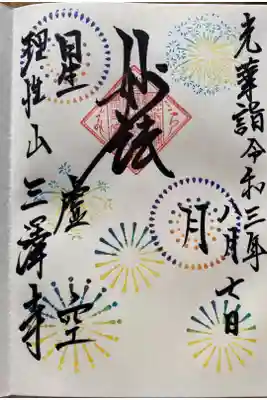 光華詣 令和三年
八月七日
月
妙
星 虚空
理性山 三澤寺